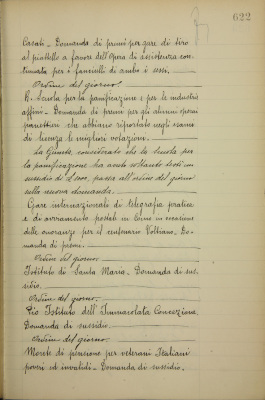 622
Casati - Domanda di premi per gare di tiro
al piattello a favore dell'Opera di assistenza con-
tinuata per i fanciulli di ambo i sessi.
Ordine del giorno.
R. Scuola per la panificazione e per le industrie
affini - Domanda di premi per gli alunni operai
panettieri che abbiano riportato negli esami
di licenza le migliori votazioni.
La Giunta, considerato che la Scuola per
la panificazione ha avuto soltanto testè un
sussidio di L. 1000, passa all'ordine del giorno
sulla nuova domanda.
Gare internazionali di telegrafia pratica
e di avviamento postali in Como in occasione
delle onoranze per il centenario Voltiano. Do-
manda di premi.
Ordine del giorno.
Istituto di Santa Maria. Domanda di sus-
sidio.
Ordine del giorno.
Pio Istituto dell'Immacolata Concezione.
Domanda di sussidio.
Ordine del giorno.
di pensione per veterani Italiani
poveri ed invalidi - Domanda di sussidio.